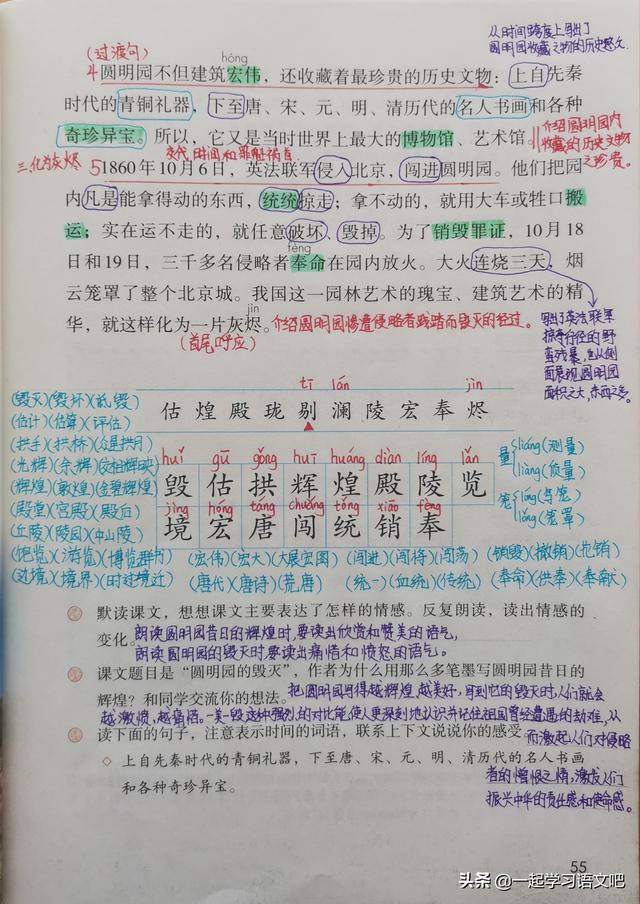 从时间跨度上写出了
圆明园收藏文物的历史悠久.
(过渡句)
hóng
4圆明园不但建筑宏伟，还收藏着最珍贵的历史文物：上自先秦
时代的青铜礼器，下至唐、宋、元、明、清历代的名人书画和各种
奇珍异宝。所以，它又是当时世界上最大的博物馆、艺术馆。
介绍圆明园内
收藏的历史文物
之珍贵.
三.化为灰烬
交代时间和罪魁祸首
5 1860年10月6日，英法联军侵入北京，闯进圆明园。他们把园
内凡是能拿得动的东西，统统掠走；拿不动的，就用大车或牲口搬
运；实在运不走的，就任意破坏、毁掉。为了销毁罪证，10月18
fèng
日和19日，三千多名侵略者奉命在园内放火。大火连烧三天，烟
云笼罩了整个北京城。我国这一园林艺术的瑰宝、建筑艺术的精
jìn
华，就这样化为一片灰烬。介绍圆明园惨遭侵略者践踏而毁灭的经过.
(首尾呼应)
写出了英法联军
掠夺行径的野
蛮残暴,也从侧
面展现圆明园
面积之大,东西之多.
tī lán jìn
估 煌 殿 珑 剔 澜 陵 宏 奉 烬
(毁灭)(毁坏)(诋毁)
(估计)(估算)(评估)
(拱手)(拱桥)(众星拱月)
(光辉)(余辉)(交相辉映)
(辉煌)(敦煌)(金碧辉煌)
(殿堂)(宫殿)(殿后)
(丘陵)(陵园)(中山陵)
(饱览)(游览)(博览群书)
(边境)(境界)(时过境迁)
huǐ gū gǒng huī huáng diàn líng lǎn
毁 估 拱 辉 煌 殿 陵 览
jìng hóng táng chuǎng tǒng xiāo fèng
境 宏 唐 闯 统 销 奉
量 liáng(测量)
liàng(质量)
笼 lóng(鸟笼)
lǒng(笼罩)
(宏伟)(宏大)(大展宏图) (闯进)(闯将)(闯荡) (销毁)(撤销)(报销)
(唐代)(唐诗)(荒唐) (统一)(血统)(传统) (奉命)(供奉)(奉献)
默读课文，想想课文主要表达了怎样的情感。反复朗读，读出情感的
变化。朗读圆明园昔日的辉煌时,要读出欣赏和赞美的语气,
朗读圆明园的毁灭时,要读出痛惜和愤怒的语气。
课文题目是“圆明园的毁灭”，作者为什么用那么多笔墨写圆明园昔日的
辉煌？和同学交流你的想法。把圆明园写得越辉煌,越美好,写到它的毁灭时,人们就会
越激愤,越痛惜。一美一毁这种强烈的对比能使人更深刻地认识并记住祖国曾经遭遇的劫难,从
读下面的句子，注意表示时间的词语，联系上下文说说你的感受。而激起人们对侵略
上自先秦时代的青铜礼器，下至唐、宋、元、明、清历代的名人书画
和各种奇珍异宝。
者的憎恨之情,激发人们
振兴中华的责任感和使命感.
55
头条 @一起学习语文吧